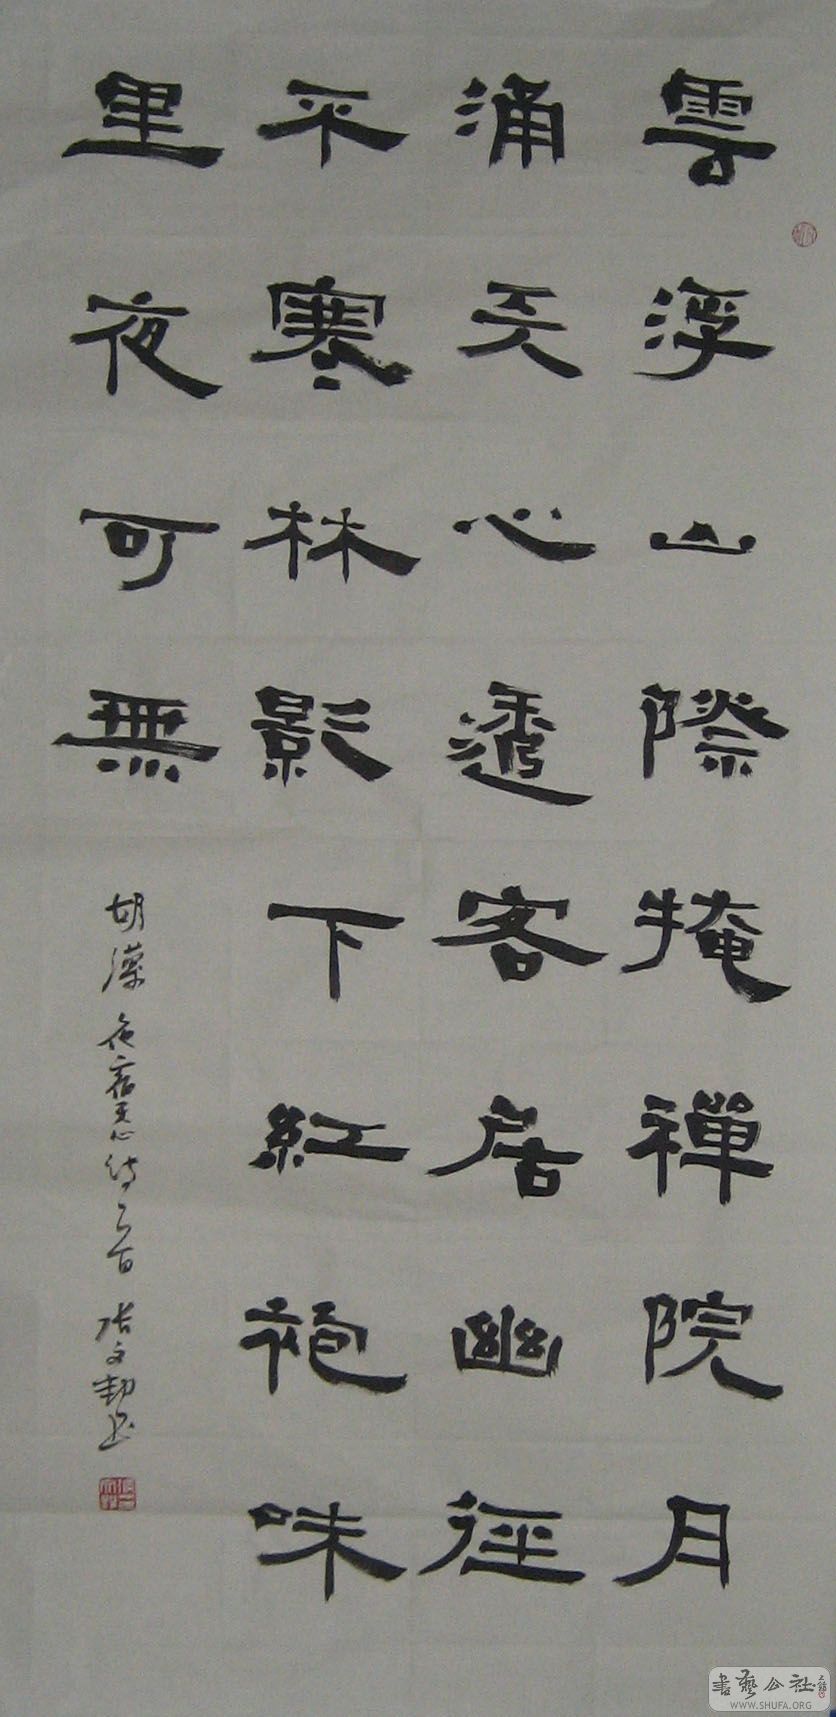 雲浮山際掩禪院月
涌天心透客居幽徑
平寒林影下紅袍味
里夜可無
胡漢夜宿天心詩一首 張文勤書
書藝公社
WWW.SHUFA.ORG